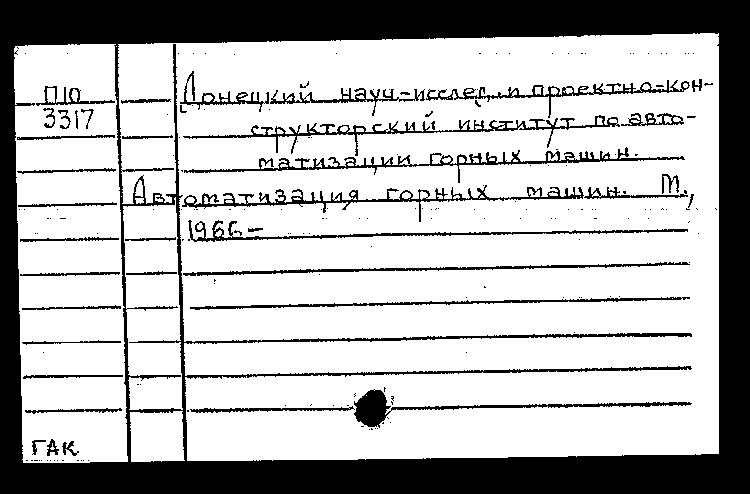 П10 Донецкий науч.-исслед. и проектно-кон-
3317 структорский институт по авто-
матизации горных машин.
Автоматизация горных машин. М.,
1966-
ГАК